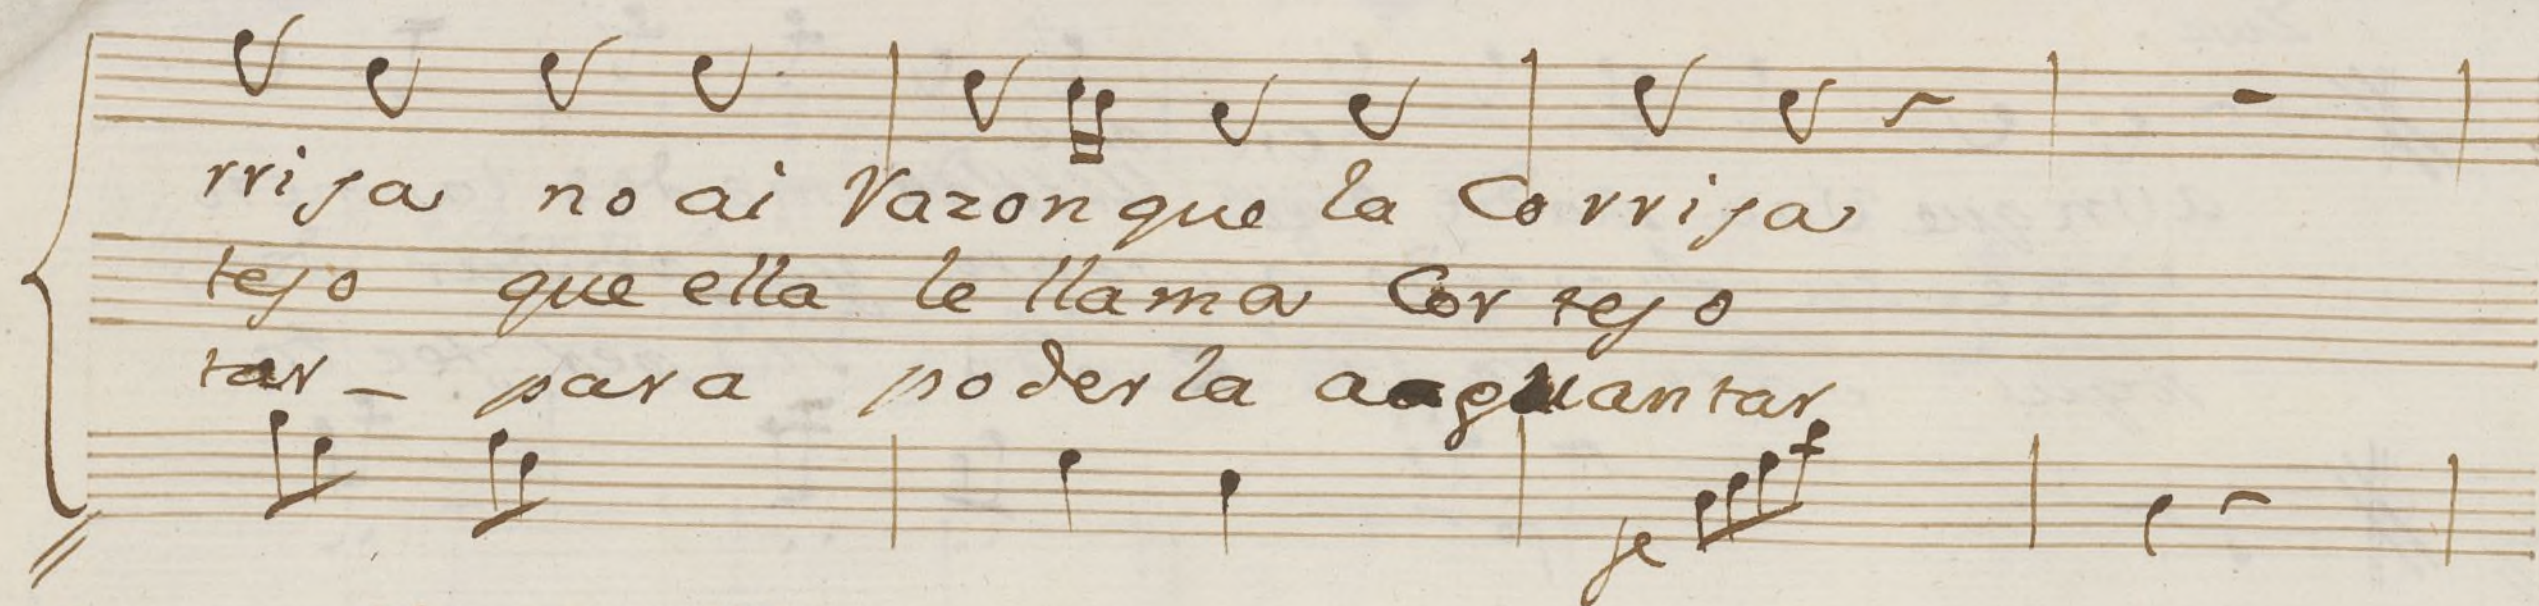 rrija no ai Varon que la Corrija
tejo que ella le llama Cortejo
tar - para poderla aaguantar
fe